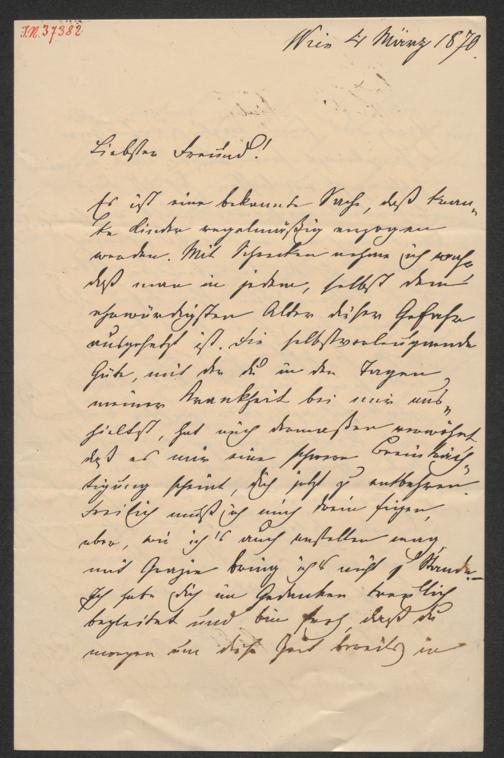 I.N. 37382
Wien 4 März 1870.
Liebster Freund!
Es ist eine bekannte Sache, daß kran„
ke Kinder regelmäßig verzogen
werden. Mit Schrecken nehme ich wahr
daß man in jedem, selbst dem
ehrwürdigsten Alter dieser Gefahr
ausgesetzt ist. Die selbstverleugnende
Güte, mit der du in den Tagen
meiner Krankheit bei mir aus„
hieltst, hat mich dermaßen verwöhnt
daß es mir eine schwere Beeinträch„
tigung scheint, dich jetzt zu entbehren.
Freilich muß ich mich drein fügen,
aber, wie ich's auch anstellen mag
mit Grazie bring ich's nicht zu Stande.
Ich habe dich im Gedanken treulich
begleitet und bin froh, daß du
morgen um diese Zeit bereits in